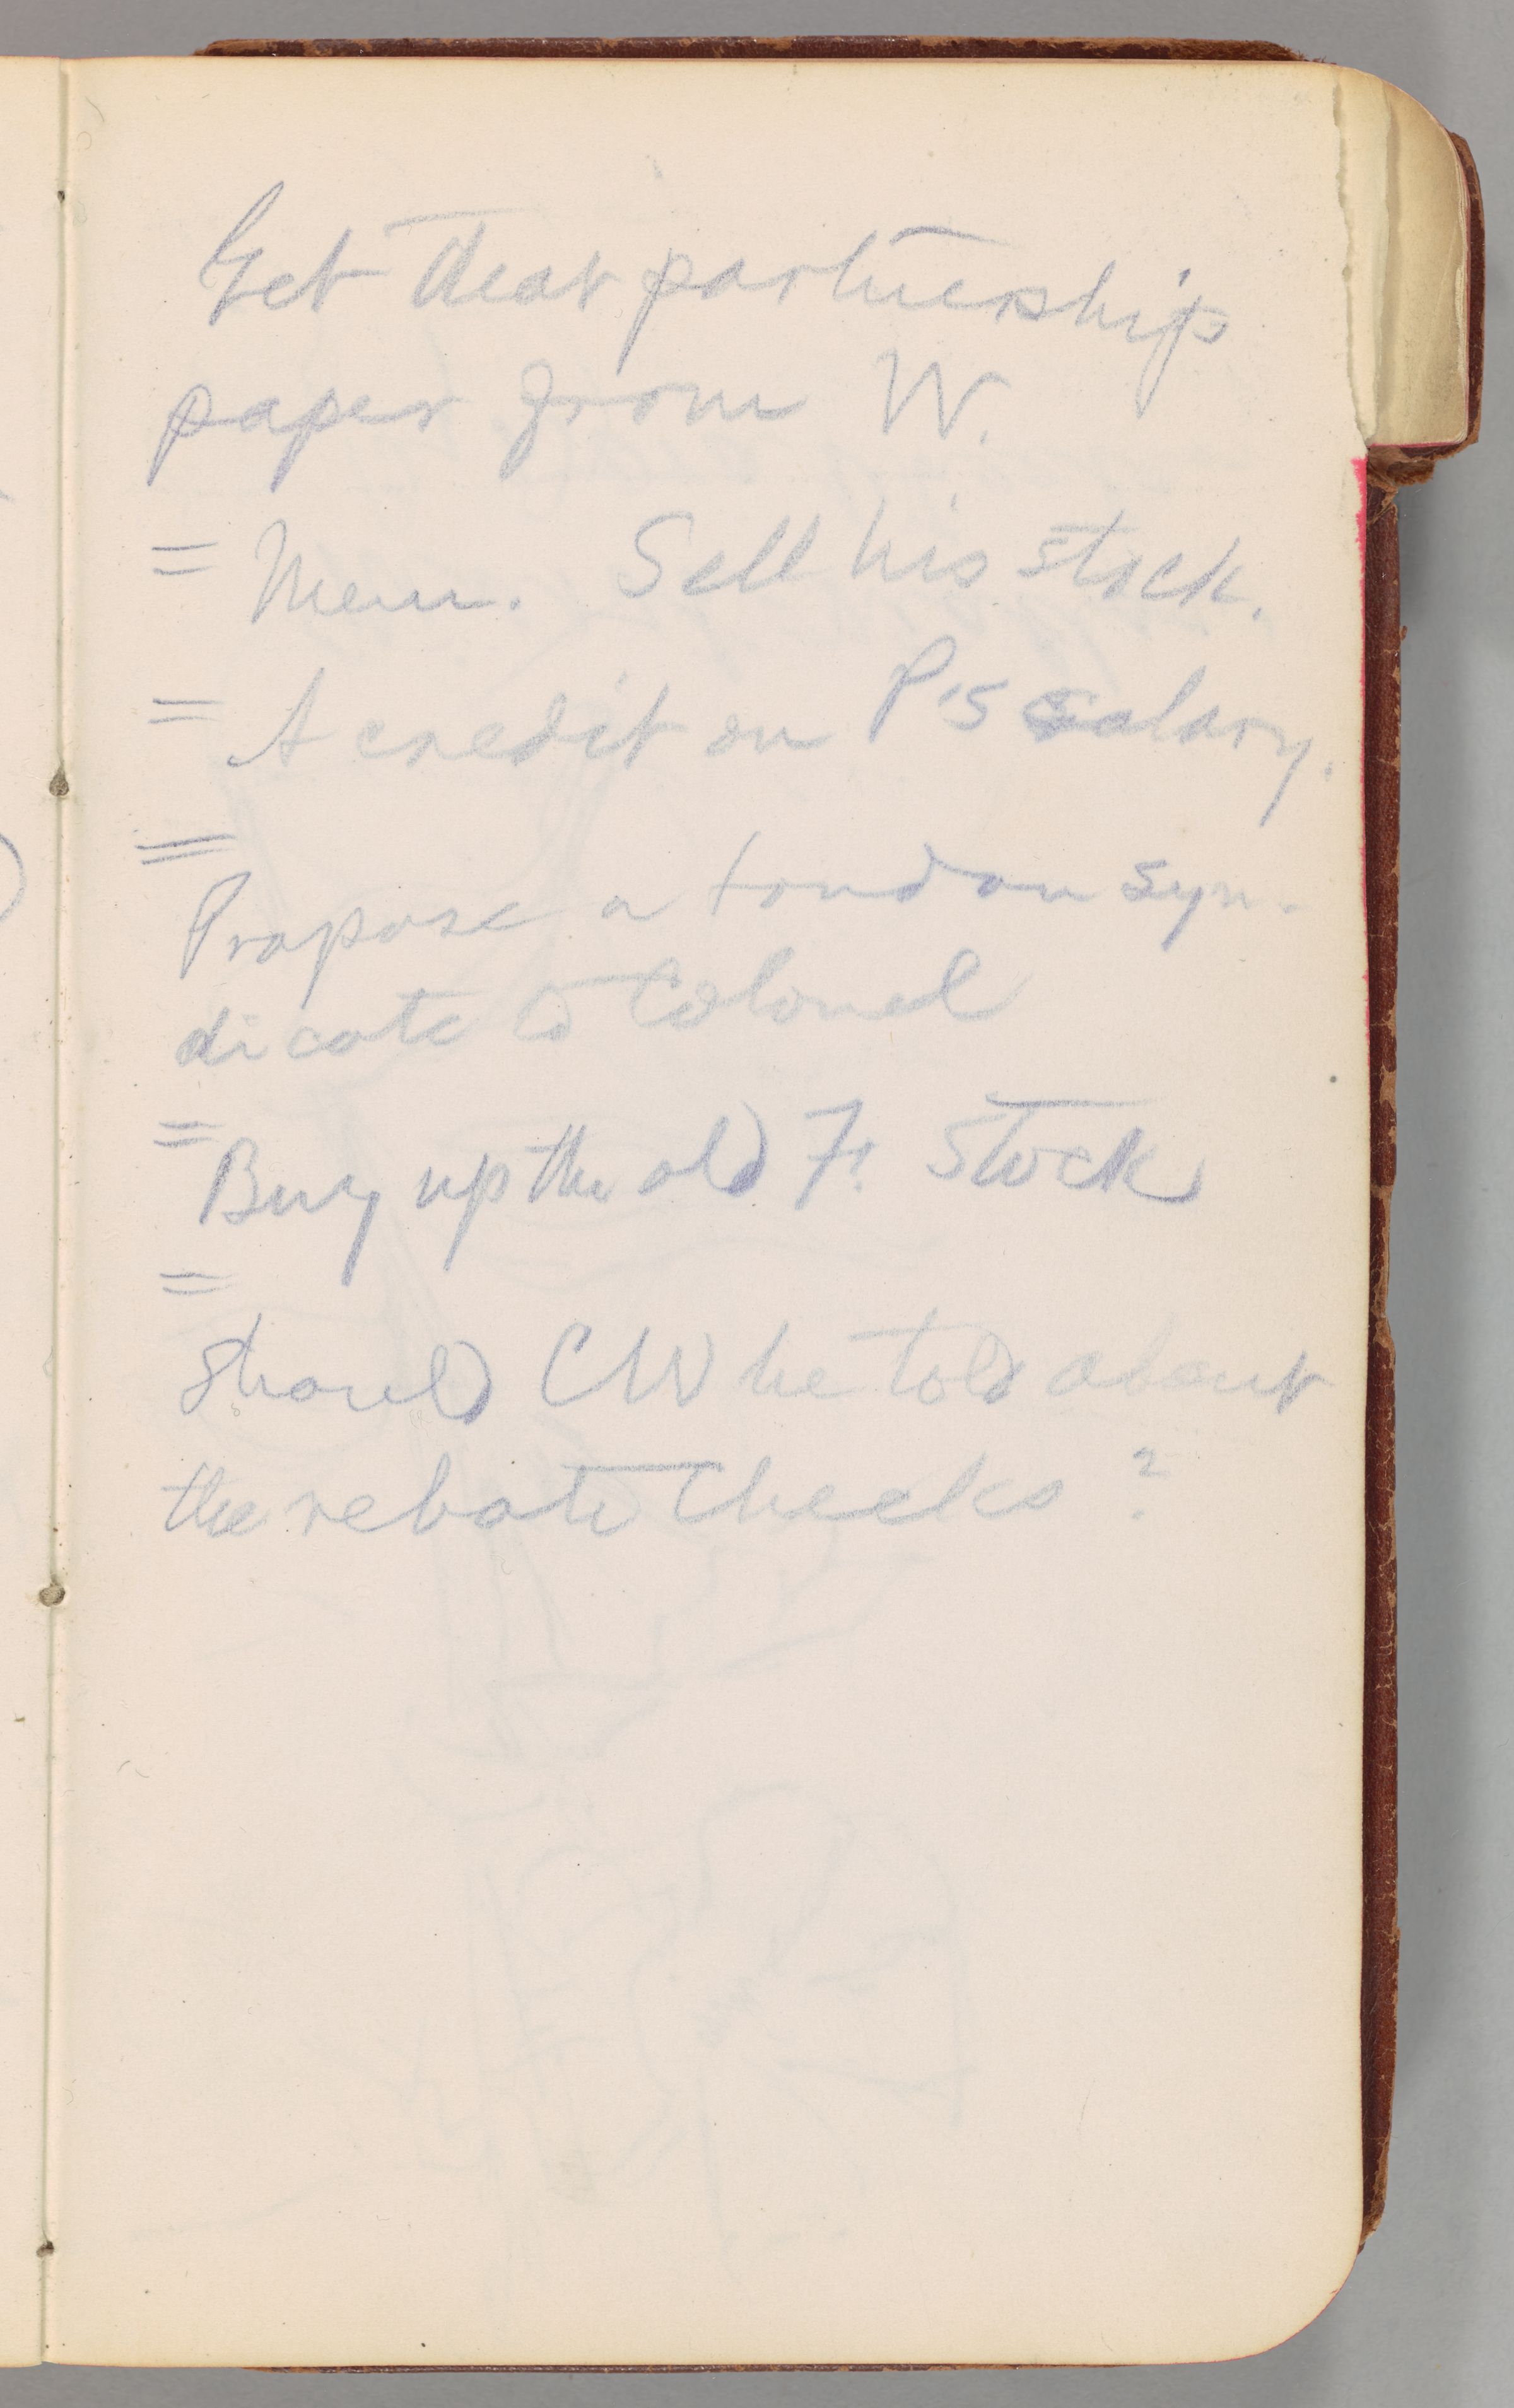 Get that partnership
paper from W.
= Mem. Sell his stock.
= A credit on P's salary.
=
Propose a London Syn-
dicate to Colonel
=
Buy up the old F. Stock
=
Should CW be told about
the rebate checks?